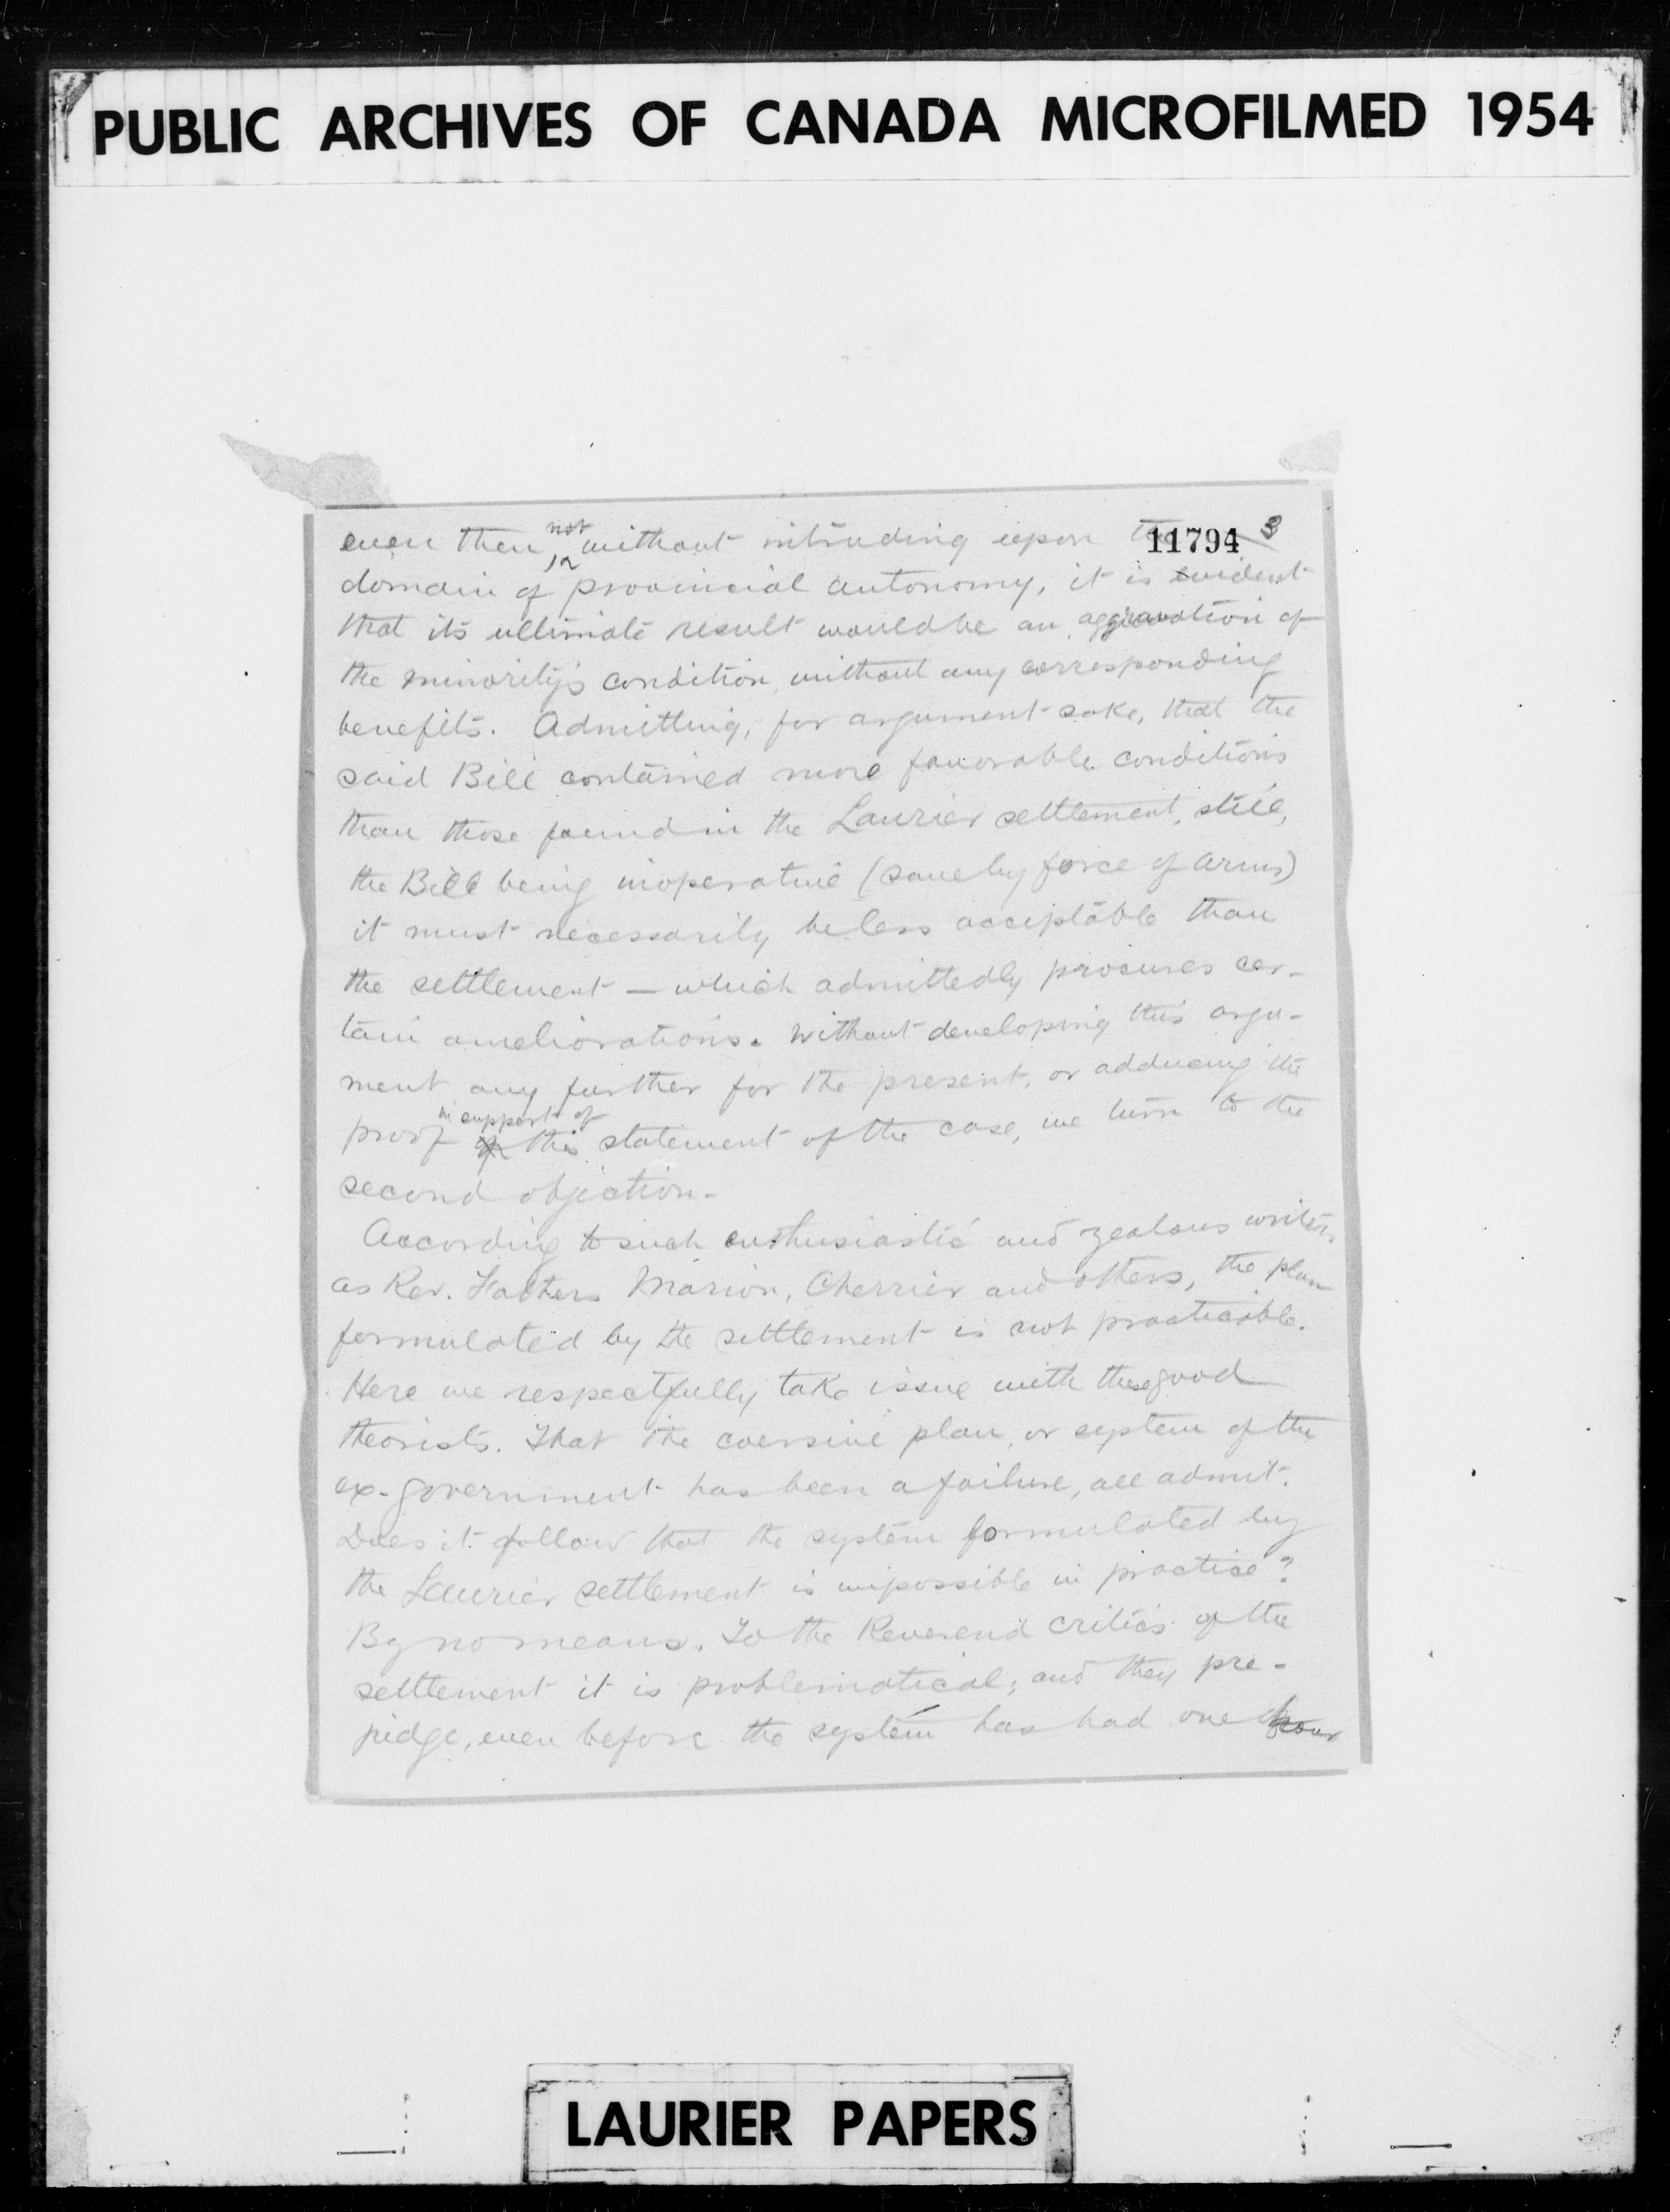 PUBLIC ARCHIVES OF CANADA MICROFILMED 1954
11794 3
even then not without intruding upon the
domain of provincial autonomy, it is evident
that its ultimate result would be an aggravation of
the minority's condition, without any corresponding
benefits. Admitting, for argument sake, that the
said Bill contained more favorable conditions
than those found in the Laurier settlement, still,
the Bill being inoperative (save by force of arms)
it must necessarily be less acceptable than
the settlement — which admittedly procures cer-
tain ameliorations. Without developing this argu-
ment any further for the present, or adducing the
in support of
proof of this statement of the case, we turn to the
second objection.
According to such enthusiastic and zealous writers,
as Rev. Fathers Marion, Cherrier and others, the plan
formulated by the settlement is not practicable.
Here we respectfully take issue with these good
theorists. That the coersive plan, or system of the
ex-government has been a failure, all admit.
Does it follow that the system formulated by
the Laurier settlement is impossible in practise?
By no means. To the Reverend critics of the
settlement it is problematical; and they pre-
judge, even before the system has had one hour
LAURIER PAPERS